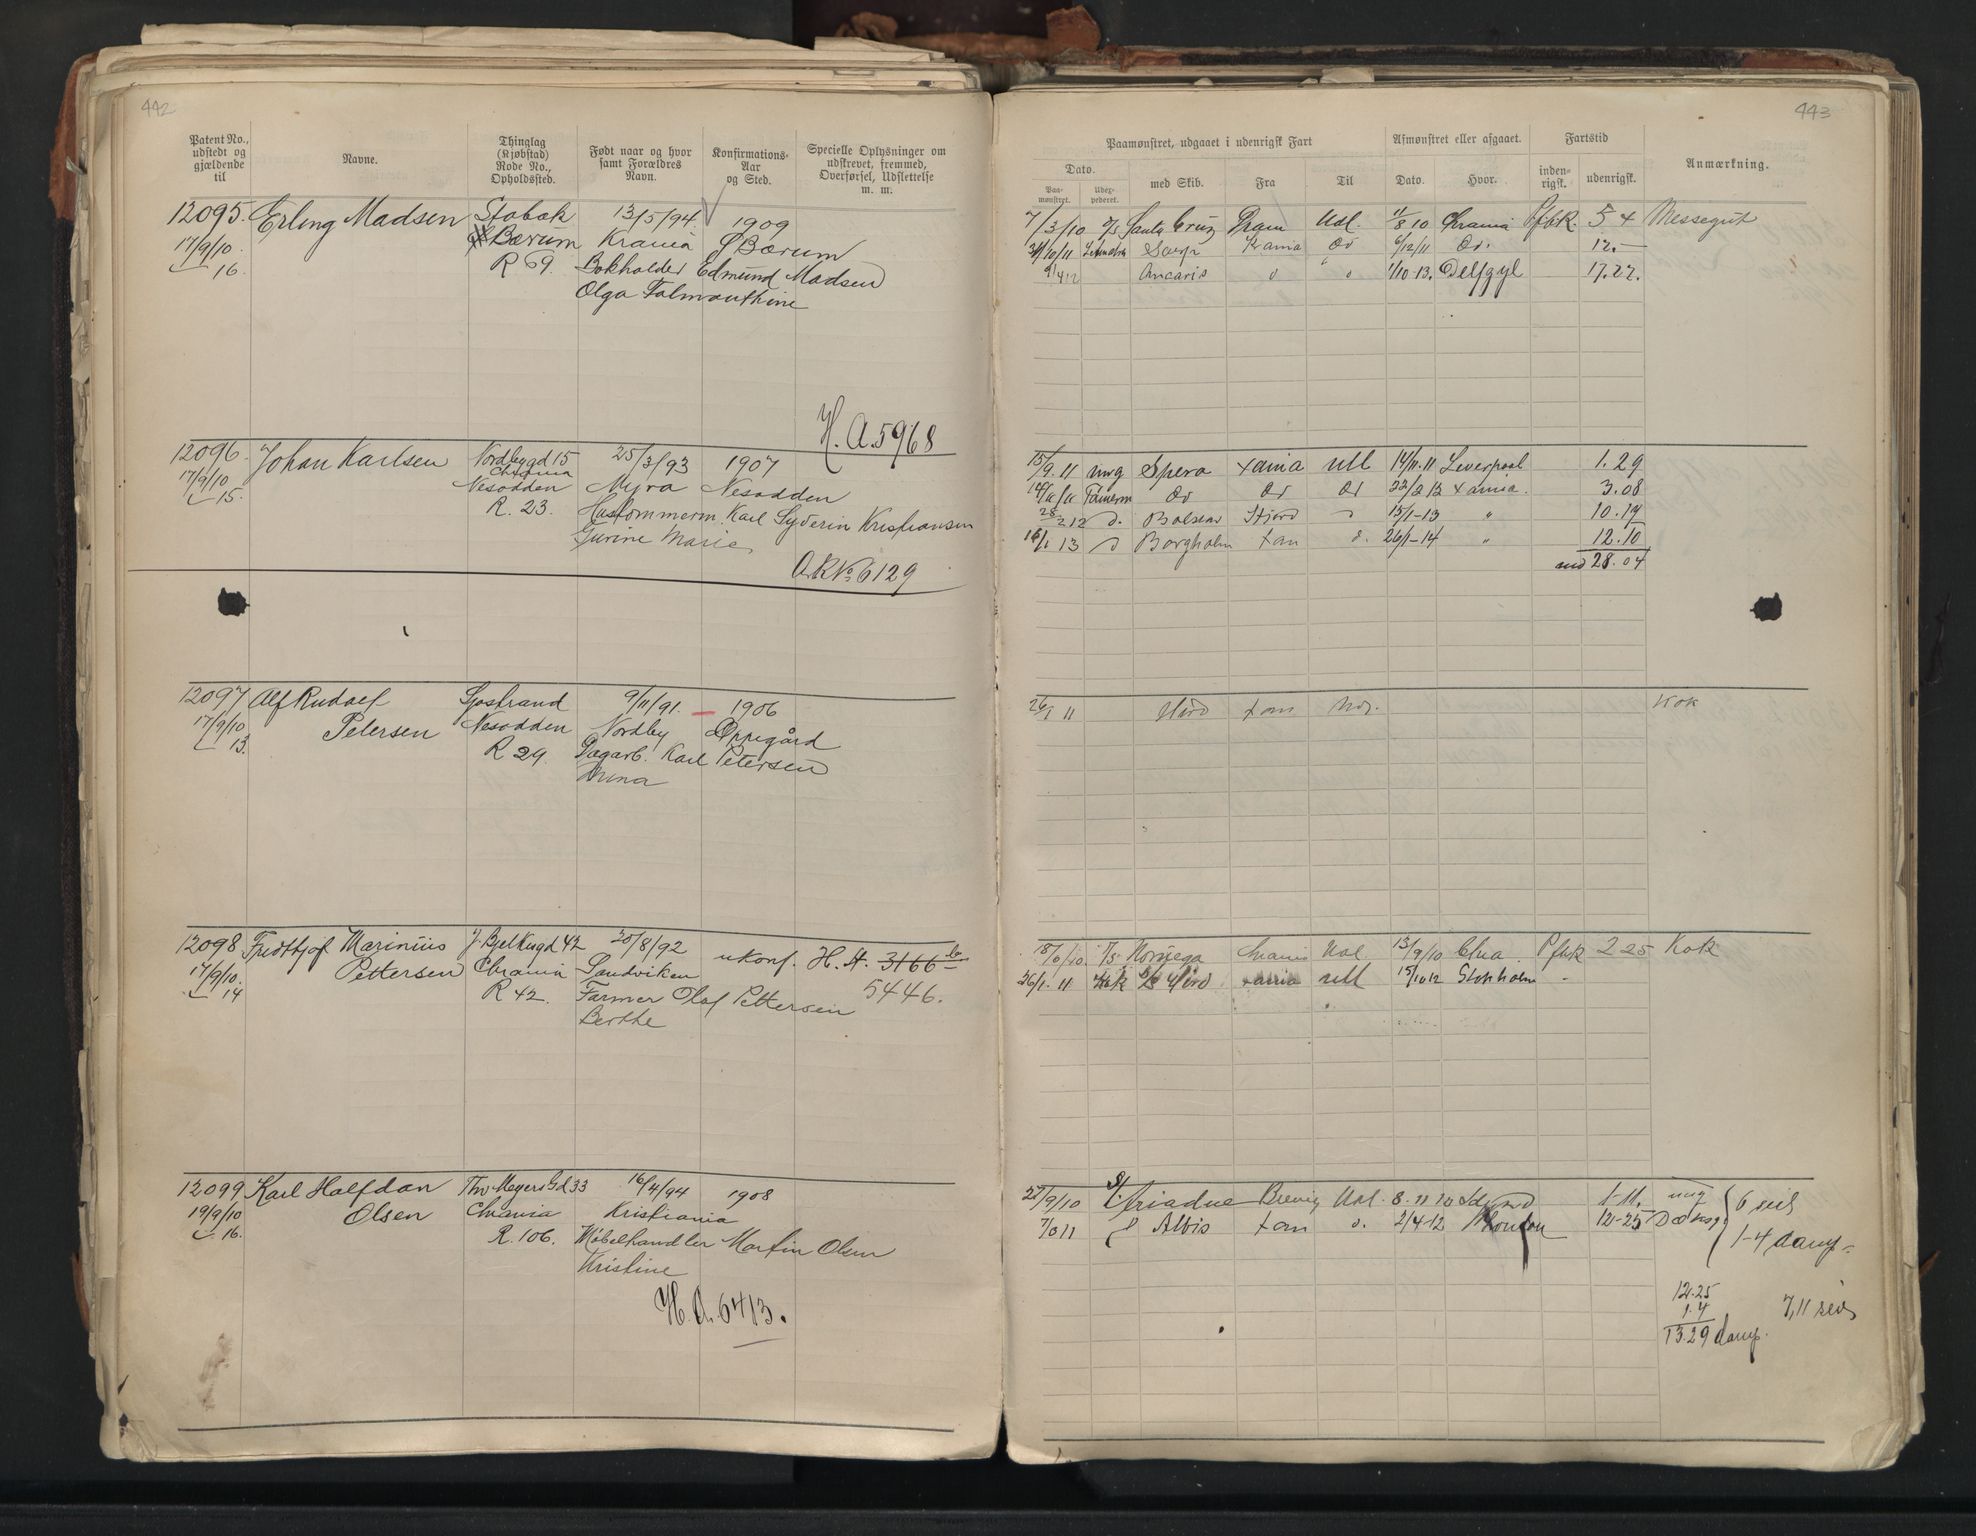 442
Patent No., udstedt og gjældende til
Navne.
Thinglag (Kjøbstad) Rode No., Opholdssted.
Født naar og hvor samt Forældres Navn.
Konfirmations-Aar og Sted.
Specielle Oplysninger om udskrevet, fremmed, Overførsel, Udslettelse m. m.
12095. Erling Madsen Stabæk 13/5/94 1909
17/9/10. Bærum Krania Bærum
16. R 69. Bokholder Edmund Madsen
Olga Falmouthine
H. A. 5968
12096. Johan Karlsen Nordbygd 15 25/3/93 1907
Chrania
17/9/10 Nesodden Myra Nesodden
15. R. 23. Hustømmerm. Karl Syverin Kristiansen
Gurine Marie
A.R No. 6129
12097 Alf Rudolf Sjøstrand 9/11/91. 1906
17/9/10 Petersen Nesodden Nordby Oppegård
13. R 29. Dagarb. Karl Petersen
Anna
12098. Fridtjof Marinius J. Bjelkesgd 42 20/8/92 ukonf. H. A. 3166
17/9/10. Pettersen Chrania Sandviken 5446.
14 R 42. Farmer Olaf Pettersen
Berthe
12099 Karl Halfdan Thv Meyers Gd 33 16/4/94 1908
19/9/10 Olsen Chrania Kristiania
16. R. 106. Møbelhandler Martin Olsen
Kristine
H. A. 6413.
443
Paamønstret, udgaaet i udenrigsk Fart
Afmønstret eller afgaaet.
Fartstid
Anmærkning.
Dato.
med Skib.
Fra
Til
Dato.
Hvor.
inden-rigsk.
udenrigsk.
Paa-mønstret.
Udex-pederet.
7/3/10 Santa Cruz Dram Udl. 11/8 10 Chrania 5 4 Messegut
10/11 Krania Do 6/12/11 Do. 12.-
9/4 12 Ancaris 1/10-13. 17.27.
15/9. 11 ung Spera Xania utl 14/11.11 Liverpool 1.29
Tømerm Do Do Do 22/2 12 Xania. 3.08
Fjord 15/1-13 " 10.19
13 Borgholm Xan 26/1-14 " 12.10
28.04
26/1 11 Xan Kok
18/6/10. Noruega Chrania Udl. 13/9/10 Chra. 2 25 Kok
26/1. 11 Kok Xania utl 15/10 12 Stokholm
27/9/10 Ariadne Brevig Udl. 8. 11 10 1-11. ung 6 seil
Albis Xan 2/4-12 12-25 1-4 damp
12.25
1.4
13.29 damp.
7,11 seil